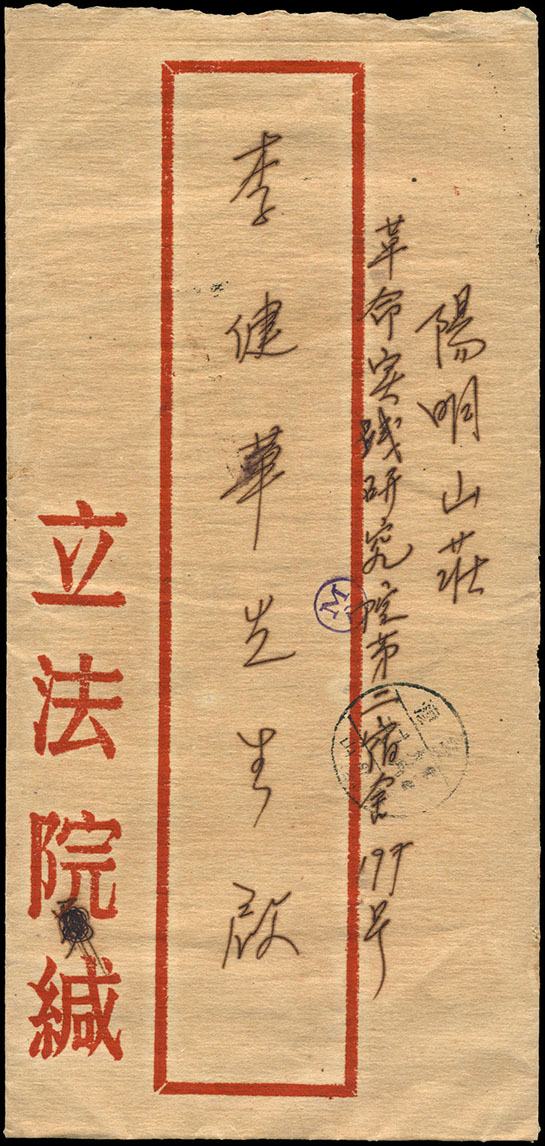 陽明山莊
革命实践研究院第二宿舍197号
李健華先生啟
M
立法院緘